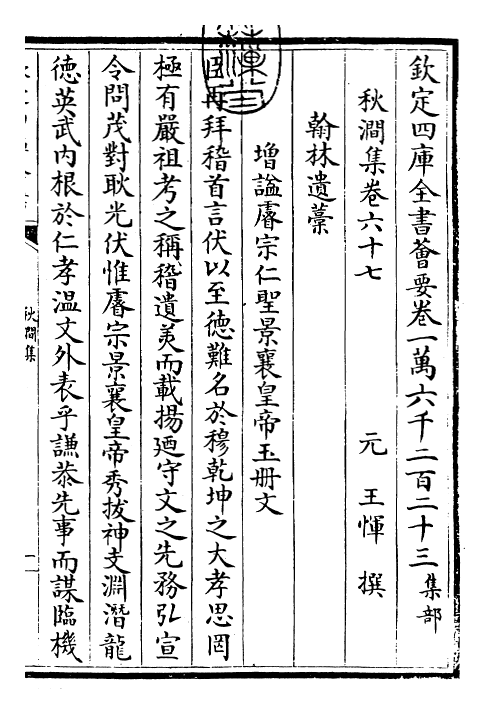 欽定四庫全書薈要卷一萬六千二百二十三 集部
秋澗集卷六十七 元 王惲 撰
翰林遺藁
增諡睿宗仁聖景襄皇帝玉冊文
臣再拜稽首言伏以至德難名於穆乾坤之大孝思罔
極有嚴祖考之稱稽遺美而載揚廼守文之先務弘宣
令問茂對耿光伏惟睿宗景襄皇帝秀拔神支淵潛龍
德英武内根於仁孝溫文外表乎謙恭先事而謀臨機
秋澗集
一